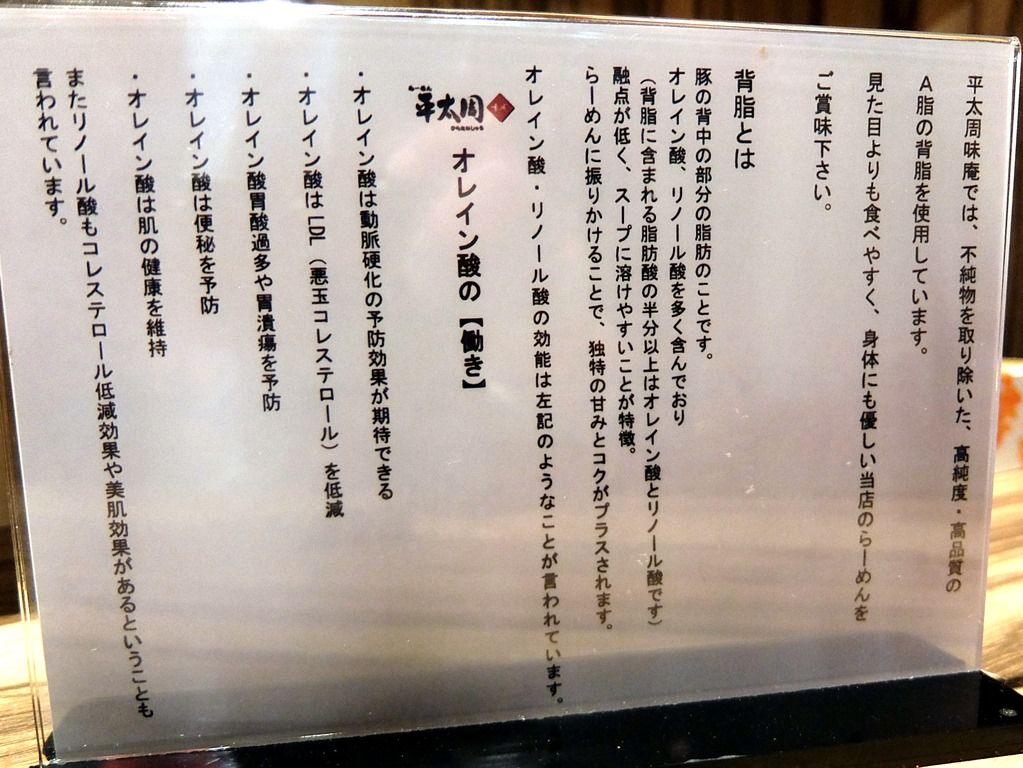 平太周味庵では、不純物を取り除いた、高純度・高品質の
A脂の背脂を使用しています。
見た目よりも食べやすく、身体にも優しい当店のらーめんを
ご賞味下さい。
背脂とは
豚の背中の部分の脂肪のことです。
オレイン酸、リノール酸を多く含んでおり
（背脂に含まれる脂肪酸の半分以上はオレイン酸とリノール酸です）
融点が低く、スープに溶けやすいことが特徴。
らーめんに振りかけることで、独特の甘みとコクがプラスされます。
オレイン酸・リノール酸の効能は左記のようなことが言われています。
平太周
オレイン酸の【働き】
・オレイン酸は動脈硬化の予防効果が期待できる
・オレイン酸はLDL（悪玉コレステロール）を低減
・オレイン酸胃酸過多や胃潰瘍を予防
・オレイン酸は便秘を予防
・オレイン酸は肌の健康を維持
またリノール酸もコレステロール低減効果や美肌効果があるということも
言われています。